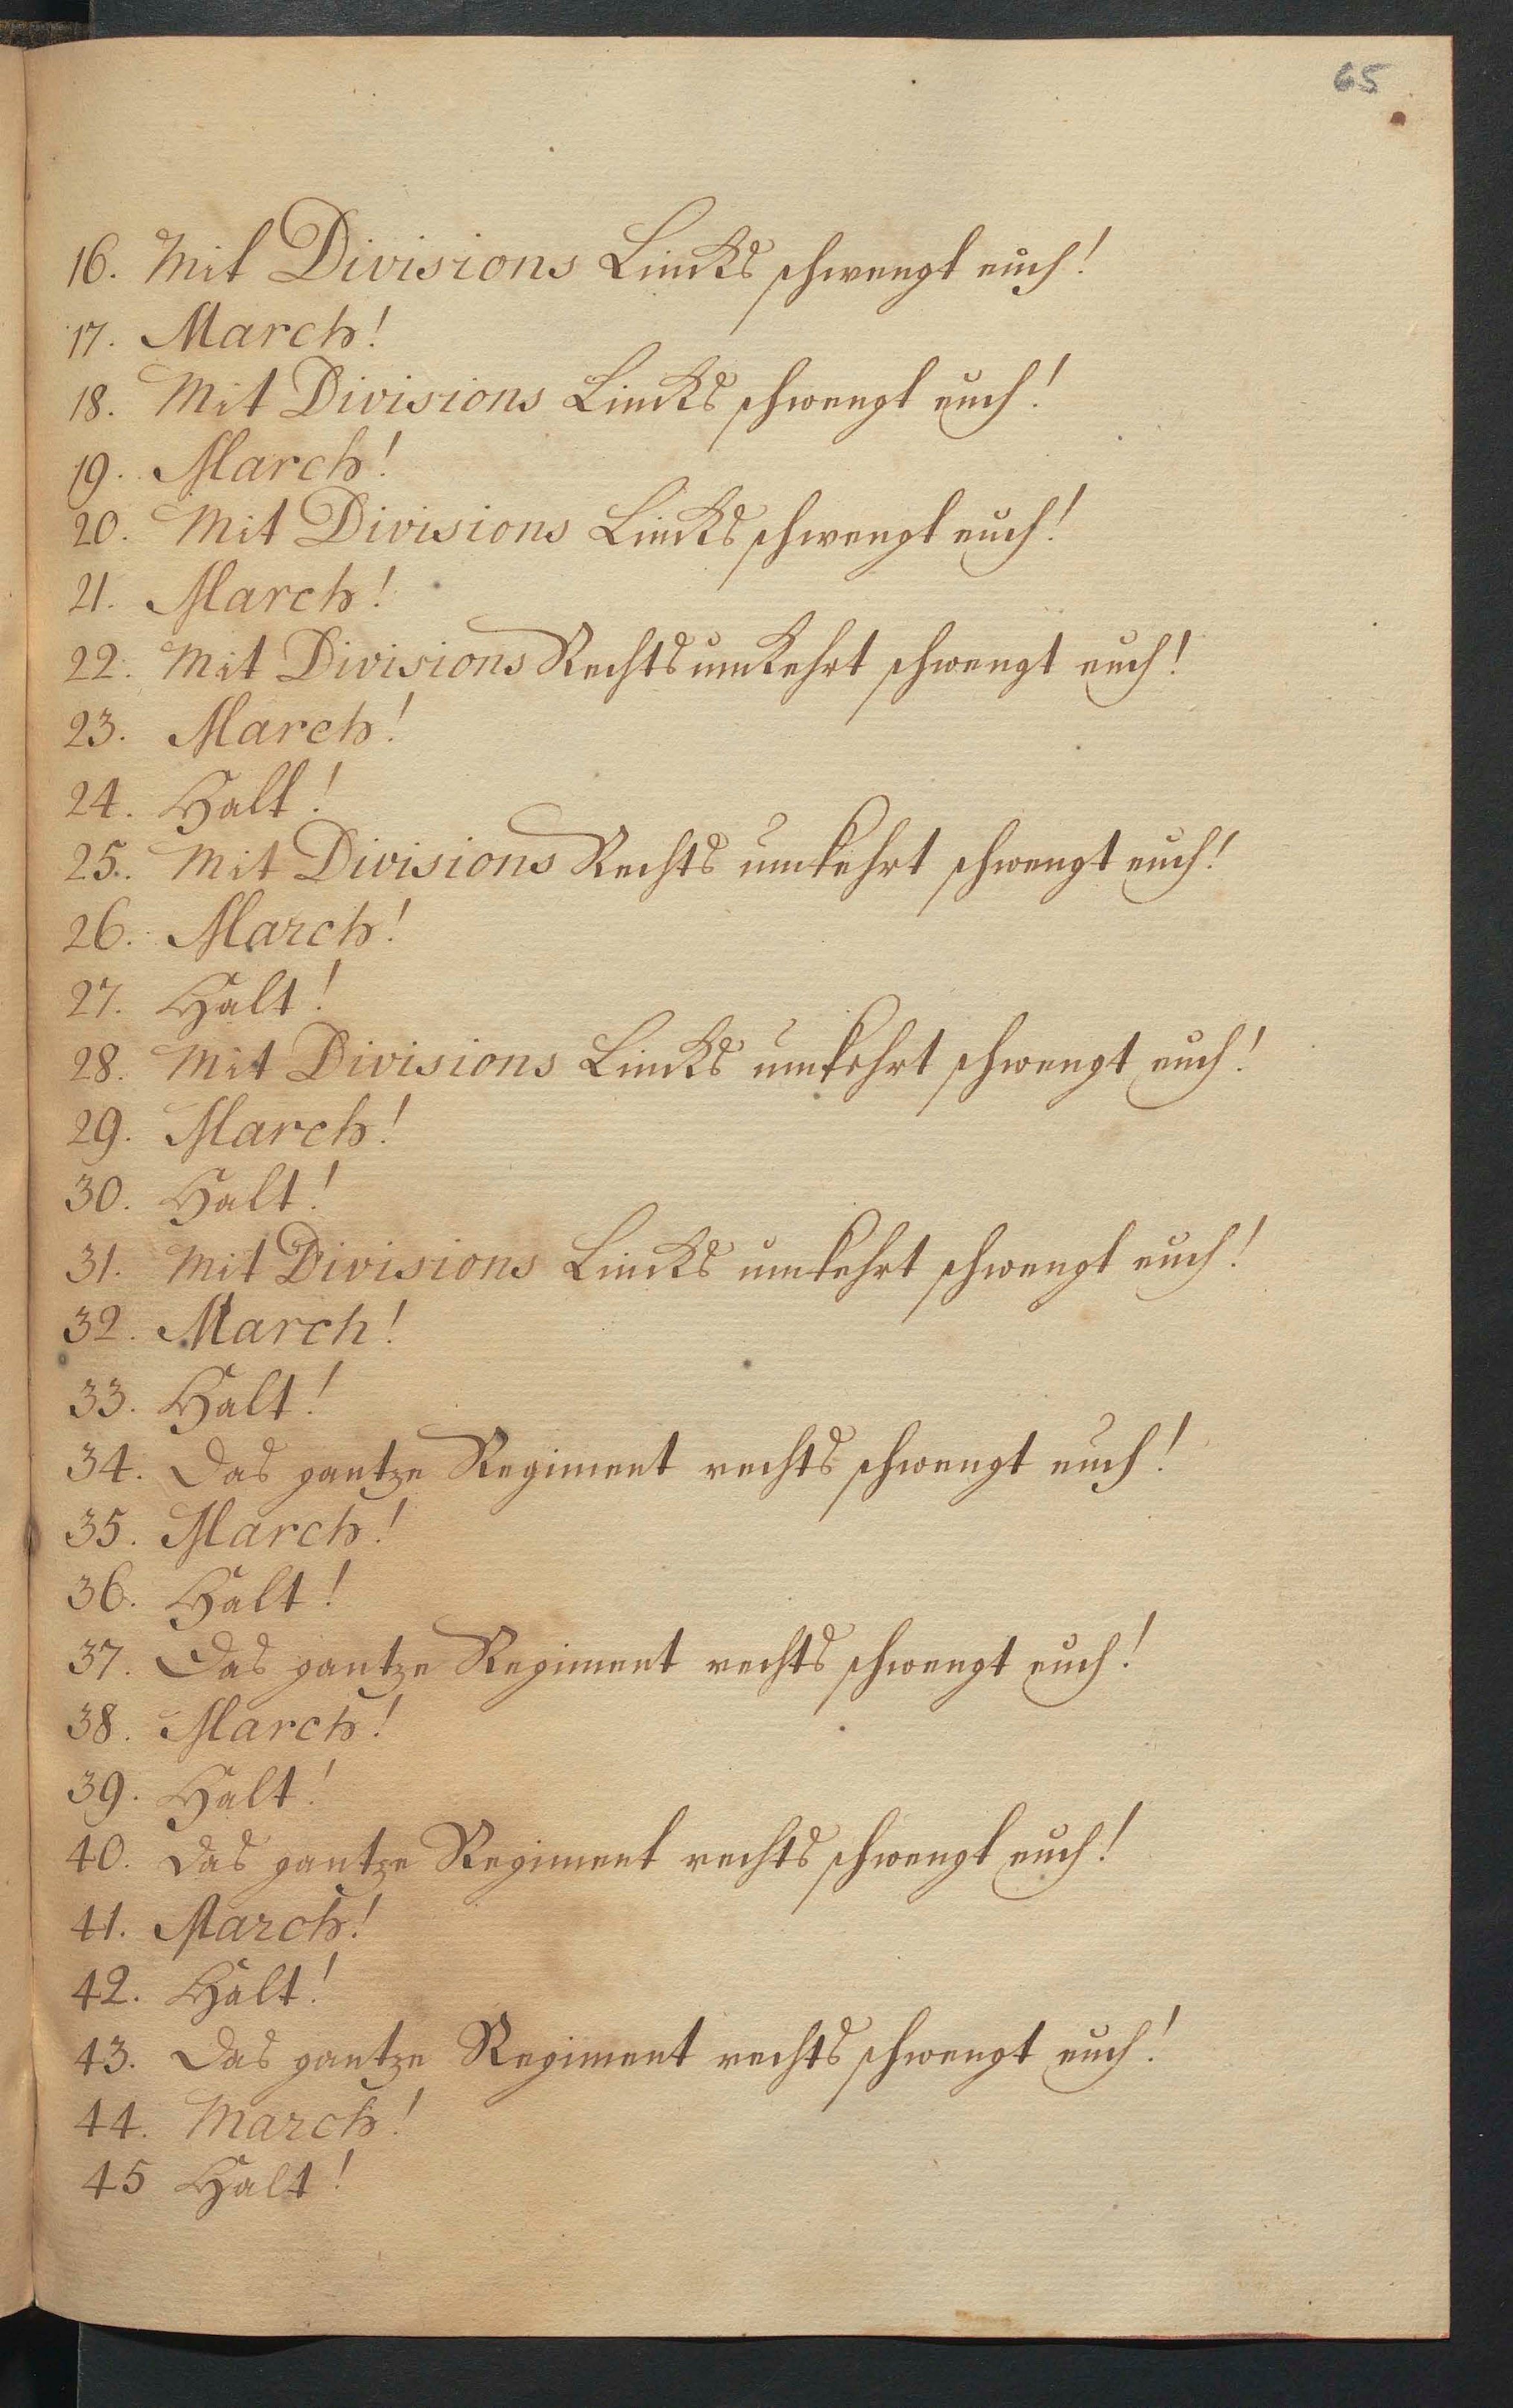 65
16. Mit Divisions Lincks schwengt euch!
17. March!
18. Mit Divisions Lincks schwengt euch!
19. March!
20. Mit Divisions Lincks schwengt euch!
21. March!
22. Mit Divisions Rechts umkehrt schwengt euch!
23. March!
24. Halt!
25. Mit Divisions Rechts umkehrt schwengt euch!
26. March!
27. Halt!
28. Mit Divisions Lincks umkehrt schwengt euch!
29. March!
30. Halt!
31. Mit Divisions Lincks umkehrt schwengt euch!
32. March!
33. Halt!
34. Das gantze Regiment rechts schwengt euch!
35. March!
36. Halt!
37. Das gantze Regiment rechts schwengt euch!
38. March!
39. Halt!
40. Das gantze Regiment rechts schwengt euch!
41. March!
42. Halt!
43. Das gantze Regiment rechts schwengt euch!
44. March!
45 Halt!